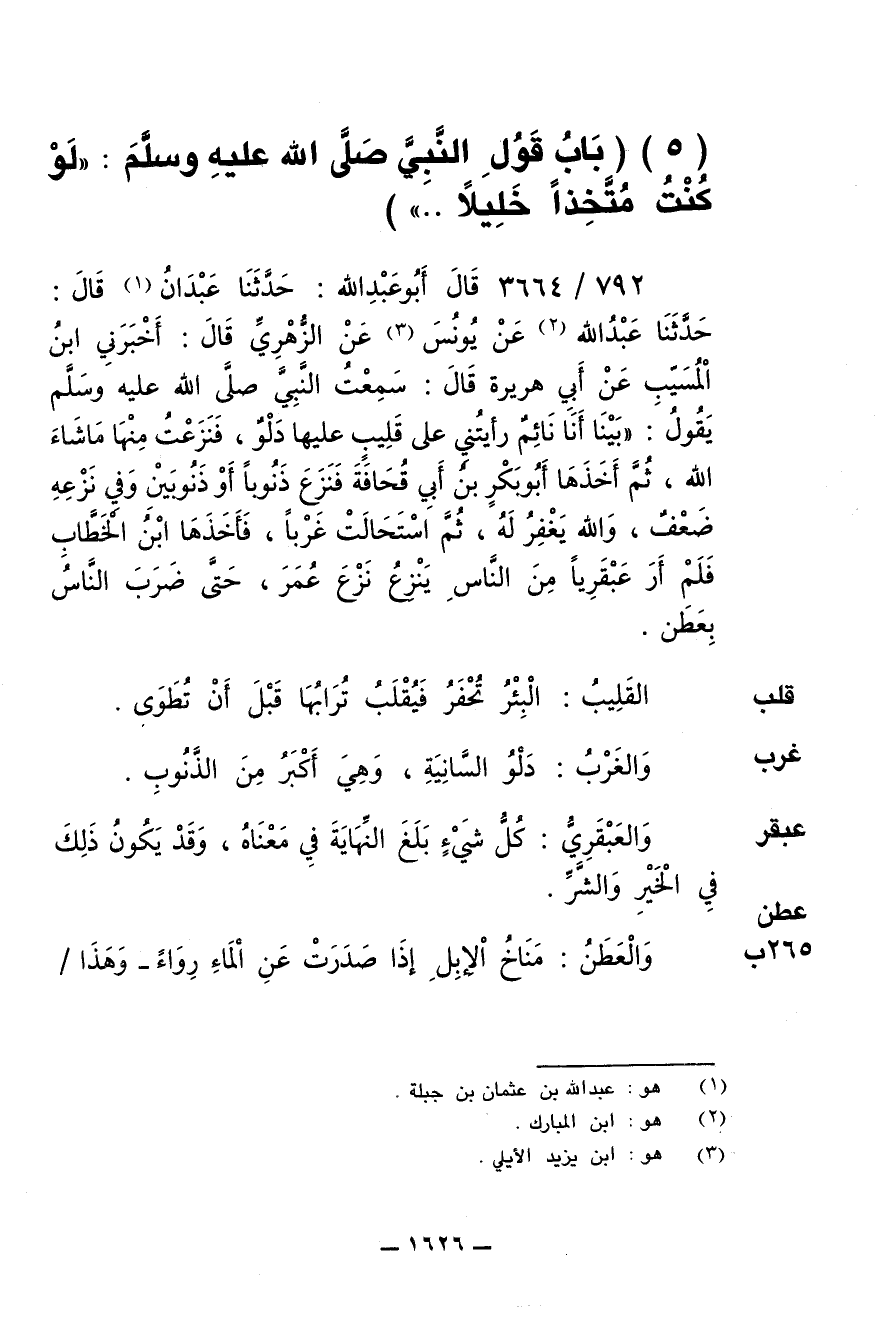 ( ٥ ) ( بَابُ قَوْلِ النَّبِيَّ صَلَّى الله عليهِ وسلَّمَ : «لَوْ
كُنْتُ مُتَّخِذاً خَلِيلاً ..» )
٧٩٢ / ٣٦٦٤ قَالَ أَبُوعَبْدِالله : حَدَّثَنَا عَبْدَانُ (١) قَالَ :
حَدَّثَنَا عَبْدُالله (٢) عَنْ يُونُسَ (٣) عَنْ الزُّهْرِيِّ قَالَ : أَخْبَرَنِي ابنُ
الْمُسَيَّبِ عَنْ أَبِي هريرة قَالَ : سَمِعْتُ النَّبِيَّ صلَّى الله عليه وسَلَّم
يَقُولُ : «بَيْنَا أَنَا نَائِمٌ رأيتُني على قَلِيبٍ عليها دَلْوٌ ، فَنَزَعْتُ مِنْهَا مَاشَاءَ
الله ، ثُمَّ أَخَذَهَا أَبُوبَكْرٍ بنُ أَبي قُحَافَةَ فَنَزَعَ ذَنُوباً أَوْ ذَنُوبَيْنْ وَفِي نَزْعِهِ
ضَعْفٌ ، وَالله يَغْفِرُ لَهُ ، ثُمَّ اسْتَحَالَتْ غَرْباً ، فَأَخَذَهَا ابْنُ الْخَطَّابِ
فَلَمْ أَرَ عَبْقَرِياً مِنَ النَّاسِ يَنْزِعُ نَزْعَ عُمَرَ ، حَتَّى ضَرَبَ النَّاسُ
بِعَطَن .
قلب القَلِيبُ : الْبِئْرُ تُحْفَرُ فَيُقْلَبُ تُرَابُهَا قَبْلَ أَنْ تُطَوَى .
غرب وَالغَرْبُ : دَلْوُ السَّانِيَةِ ، وَهِيَ أَكْبَرُ مِنَ الذَّنُوبِ .
عبقر وَالعَبْقَرِيُّ : كُلُّ شَيْءٍ بَلَغَ النِّهَايَةَ فِي مَعْنَاهُ ، وَقَدْ يَكُونُ ذَلِكَ
فِي الْخَيْرِ وَالشَّرِّ .
عطن
٢٦٥ب وَالْعَطَنُ : مَنَاخُ الْإِبِلِ إِذَا صَدَرَتْ عَنِ الْمَاءِ رِوَاءً ـ وَهَذَا /
(١) هو : عبدالله بن عثمان بن جبلة .
(٢) هو : ابن المبارك .
(٣) هو : ابن يزيد الأيلي .
ـ ١٦٢٦ ـ